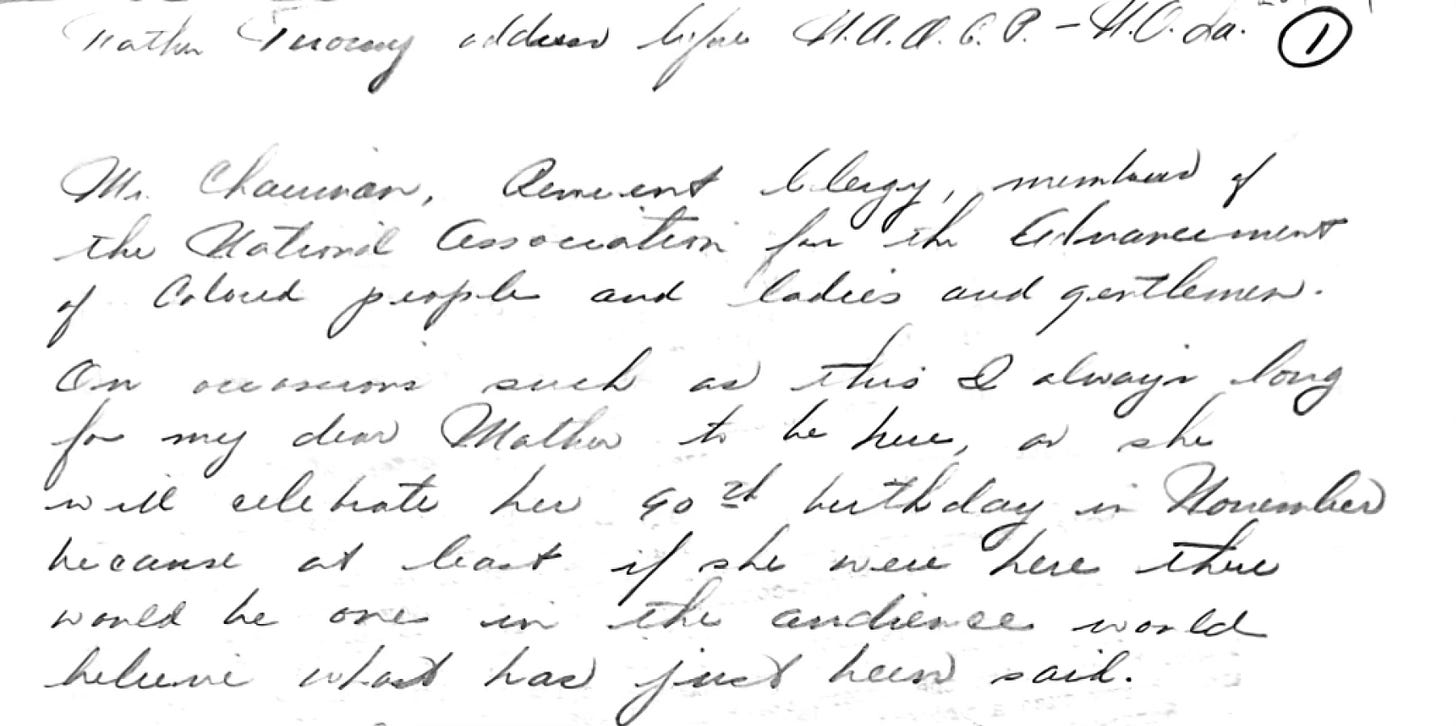 Father Twomey address before N.A.A.C.P. – N.O. La. ①
Mr. Chairman, Reverent Clergy, members of
the National Association for the Advancement
of Colored people and ladies and gentlemen.
On occasions such as this I always long
for my dear Mother to be here, as she
will celebrate her 90th birthday in November
because at least if she were here there
would be one in the audience would
believe what has just been said.